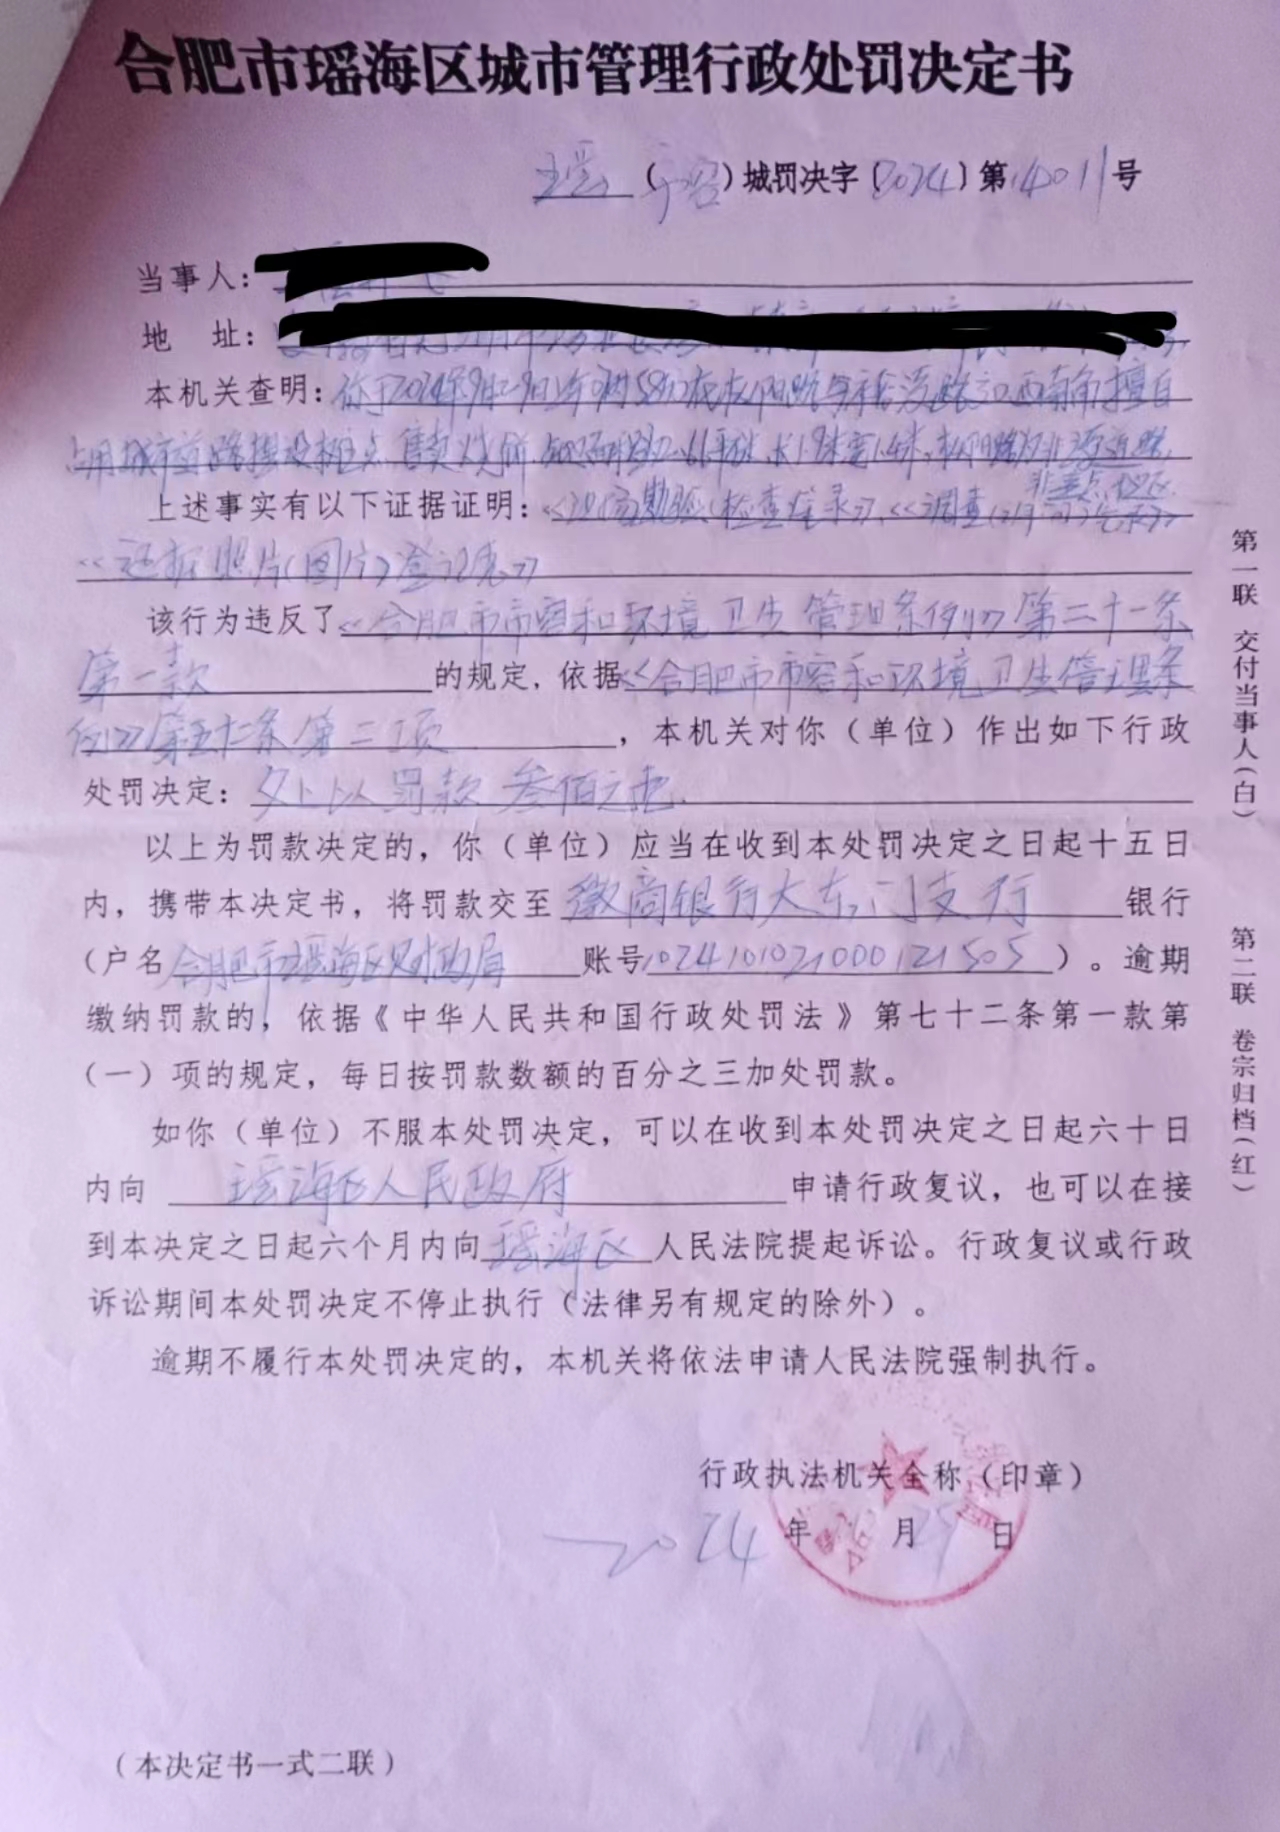 合肥市瑶海区城市管理行政处罚决定书
瑶（市容）城罚决字〔2024〕第14011号
当事人：
地 址：
本机关查明：你于2024年9月29日 在 路与 路口西南角擅自
占用城市道路摆设摊点售卖烧饼，占地面积2.66平方米，长1.9米宽1.4米，
非重点地区
上述事实有以下证据证明：《现场勘验（检查）笔录》、《调查（询问）笔录》
《证据照片（图片）登记表》
该行为违反了《合肥市市容和环境卫生管理条例》第二十一条
第一款的规定，依据《合肥市市容和环境卫生管理条
例》第五十二条第二项，本机关对你（单位）作出如下行政
处罚决定：处以罚款叁佰元整.
以上为罚款决定的，你（单位）应当在收到本处罚决定之日起十五日
内，携带本决定书，将罚款交至徽商银行大东门支行银行
（户名合肥市瑶海区财政局账号1024101021000121505）。逾期
缴纳罚款的，依据《中华人民共和国行政处罚法》第七十二条第一款第
（一）项的规定，每日按罚款数额的百分之三加处罚款。
如你（单位）不服本处罚决定，可以在收到本处罚决定之日起六十日
内向瑶海区人民政府申请行政复议，也可以在接
到本决定之日起六个月内向瑶海区人民法院提起诉讼。行政复议或行政
诉讼期间本处罚决定不停止执行（法律另有规定的除外）。
逾期不履行本处罚决定的，本机关将依法申请人民法院强制执行。
行政执法机关全称（印章）
2024年 月29日
（本决定书一式二联）
第一联 交付当事人（白）
第二联 卷宗归档（红）